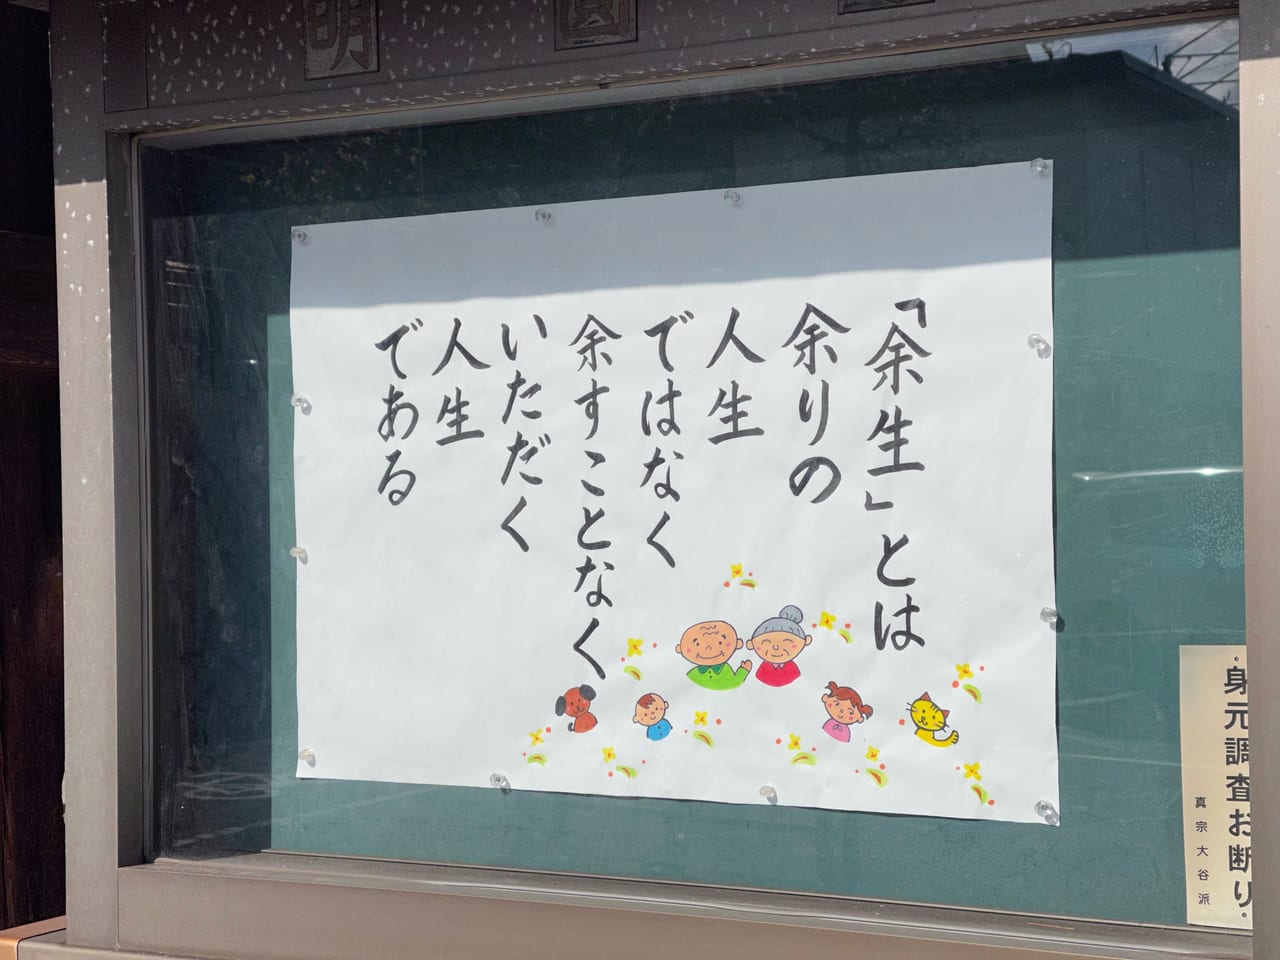 「余生」とは
余りの
人生
ではなく
余すことなく
いただく
人生
である
身元調査お断り
真宗大谷派
明